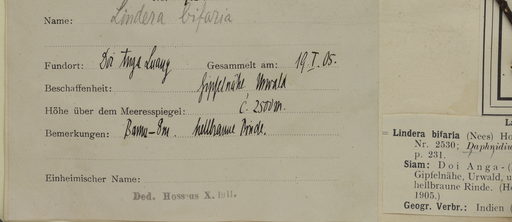 Name: Lindera bifaria
Fundort: Doi Anga Luang Gesammelt am: 19.I.05.
Beschaffenheit: Gipfelnähe Urwald
Höhe über dem Meeresspiegel: c. 2500 m.
Bemerkungen: Baum-8m. hellbraune Rinde.
Einheimischer Name:
Ded. Hosseus X. 1911.
Lindera bifaria (Nees) Ho
Nr. 2530; Daphnidiu
p. 231.
Siam: Doi Anga-(
Gipfelnähe, Urwald, u
hellbraune Rinde. (Ho
1905.)
Geogr. Verbr.: Indien (